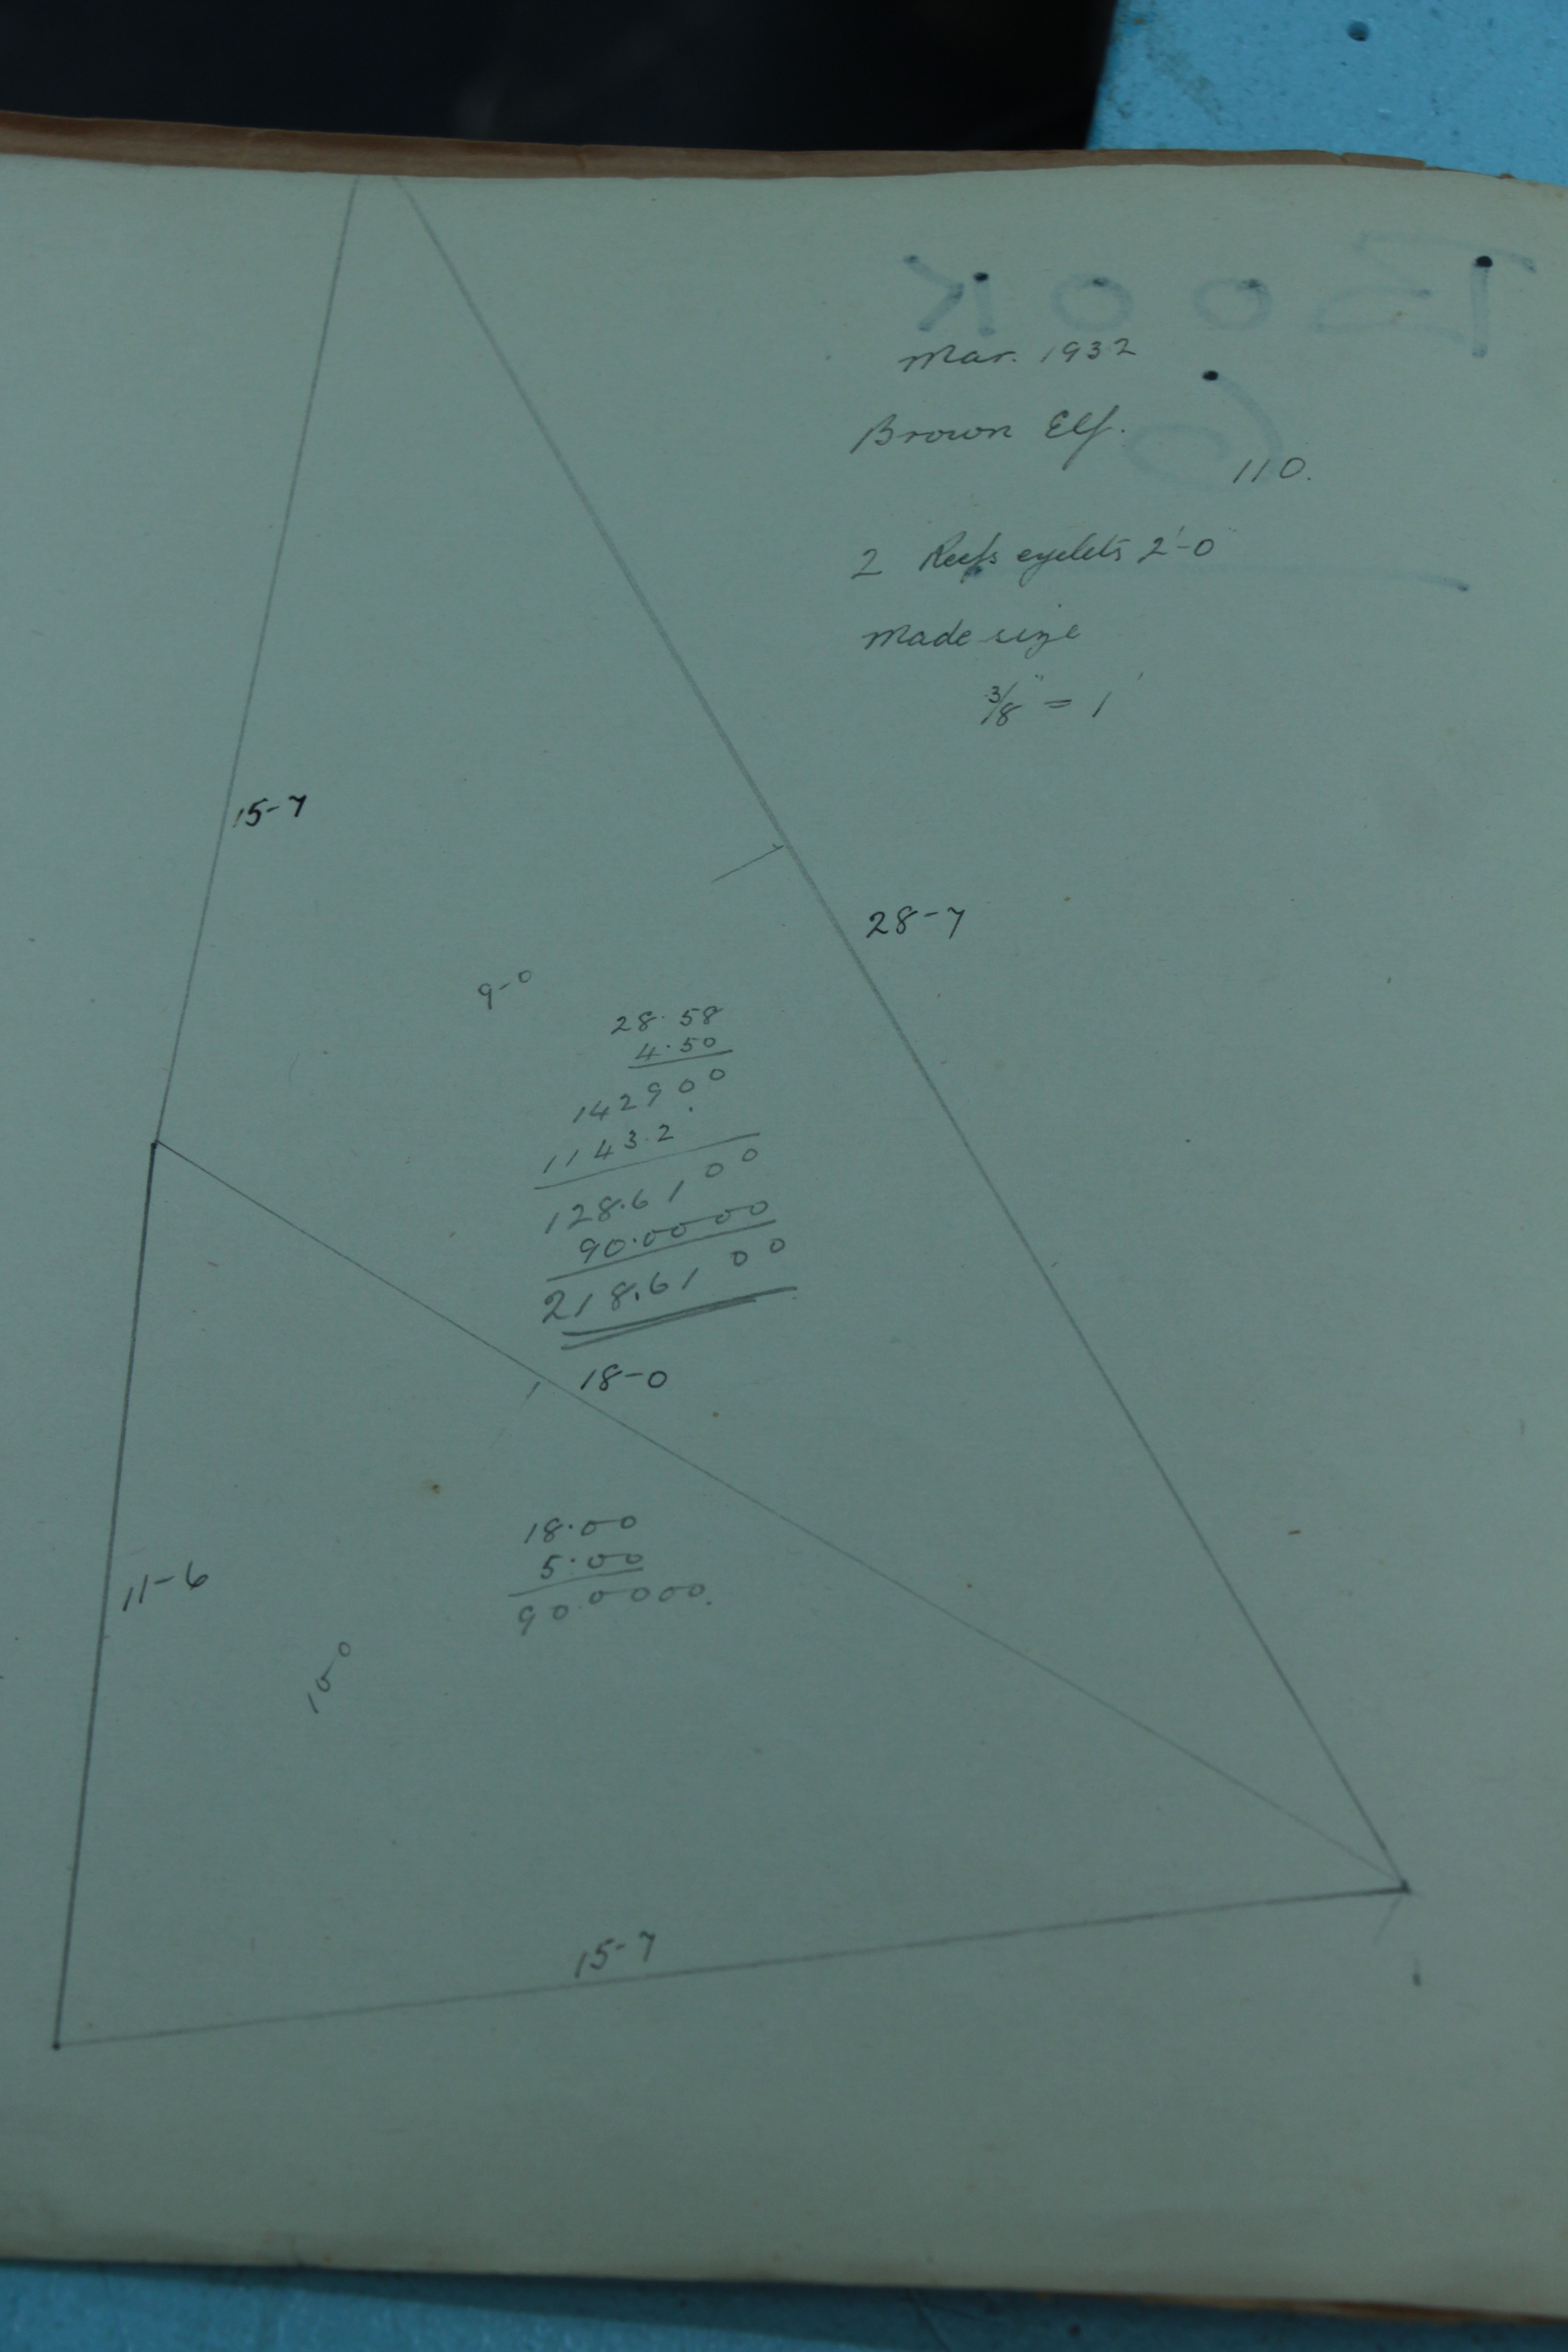 BOOK
6
Mar. 1932
Brown Elf.
110.
2 Reefs eyelets 2'-0"
Made size
3/8" = 1'
15-7
28-7
9-0
28.58
4.50
142900
1143.2
128.6100
90.0000
218.6100
18-0
18.00
5.00
90.0000.
11-6
10-0
15-7